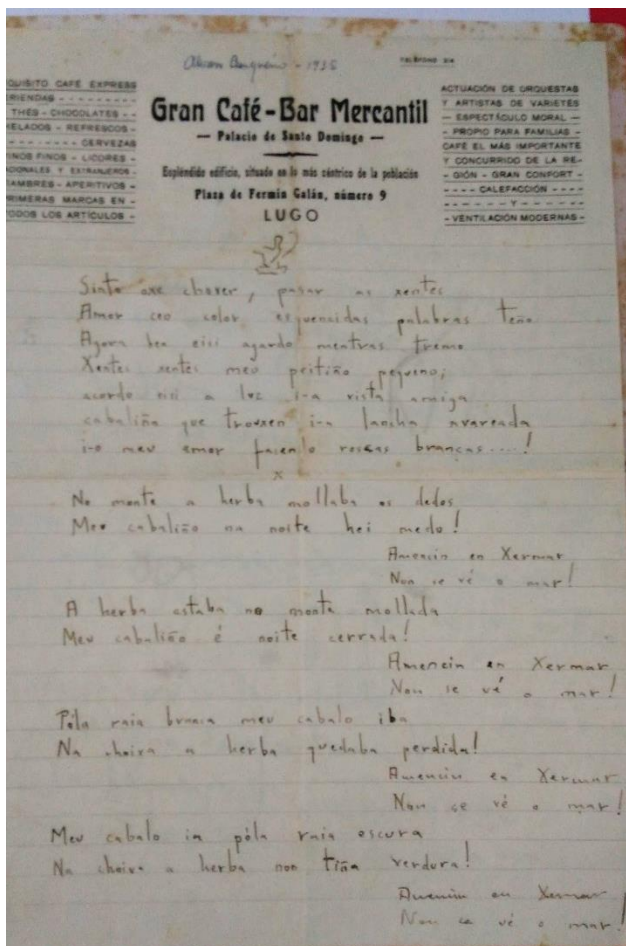 Alvaro Cunqueiro - 1935
TELÉFONO 314
QUISITO CAFÉ EXPRESS
RIENDAS - - - - - - -
THÉS - CHOCOLATES - -
HELADOS - REFRESCOS -
- - - - - - CERVEZAS
INOS FINOS - LICORES -
CIONALES Y EXTRANJEROS -
AMBRES - APERITIVOS -
RIMERAS MARCAS EN -
ODOS LOS ARTÍCULOS -
Gran Café-Bar Mercantil
— Palacio de Santo Domingo —
Espléndido edificio, situado en lo más céntrico de la población
Plaza de Fermín Galán, número 9
LUGO
ACTUACIÓN DE ORQUESTAS
Y ARTISTAS DE VARIETÉS
— ESPECTÁCULO MORAL —
- PROPIO PARA FAMILIAS -
CAFÉ EL MÁS IMPORTANTE
Y CONCURRIDO DE LA RE-
- GIÓN - GRAN CONFORT -
- - - - CALEFACCIÓN - - - -
- - - - - - Y - - - - - -
- VENTILACIÓN MODERNAS -
Sinto oxe chover, pasar as xentes
Amor ceo color esquencidas palabras teño
Agora ben eisi agardo mentras tremo
Xentes xentes meu peitiño pequeno;
acordo eisi a luz i-a vista amiga
cabaliña que trouxen i-a lancha avareada
i-o meu amor facendo roscas brancas....!
x
No monte a herba mollaba os dedos
Meu cabaliño na noite hei medo!
Amencin en Xermar
Non se vé o mar!
A herba estaba no monte mollada
Meu cabaliño é noite cerrada!
Amencin en Xermar
Non se vé o mar!
Póla raia branca meu cabalo iba
Na choiva a herba quedaba perdida!
Amencin en Xermar
Non se vé o mar!
Meu cabalo ia póla raia escura
Na choiva a herba non tiña verdura!
Amencin en Xermar
Non se vé o mar!